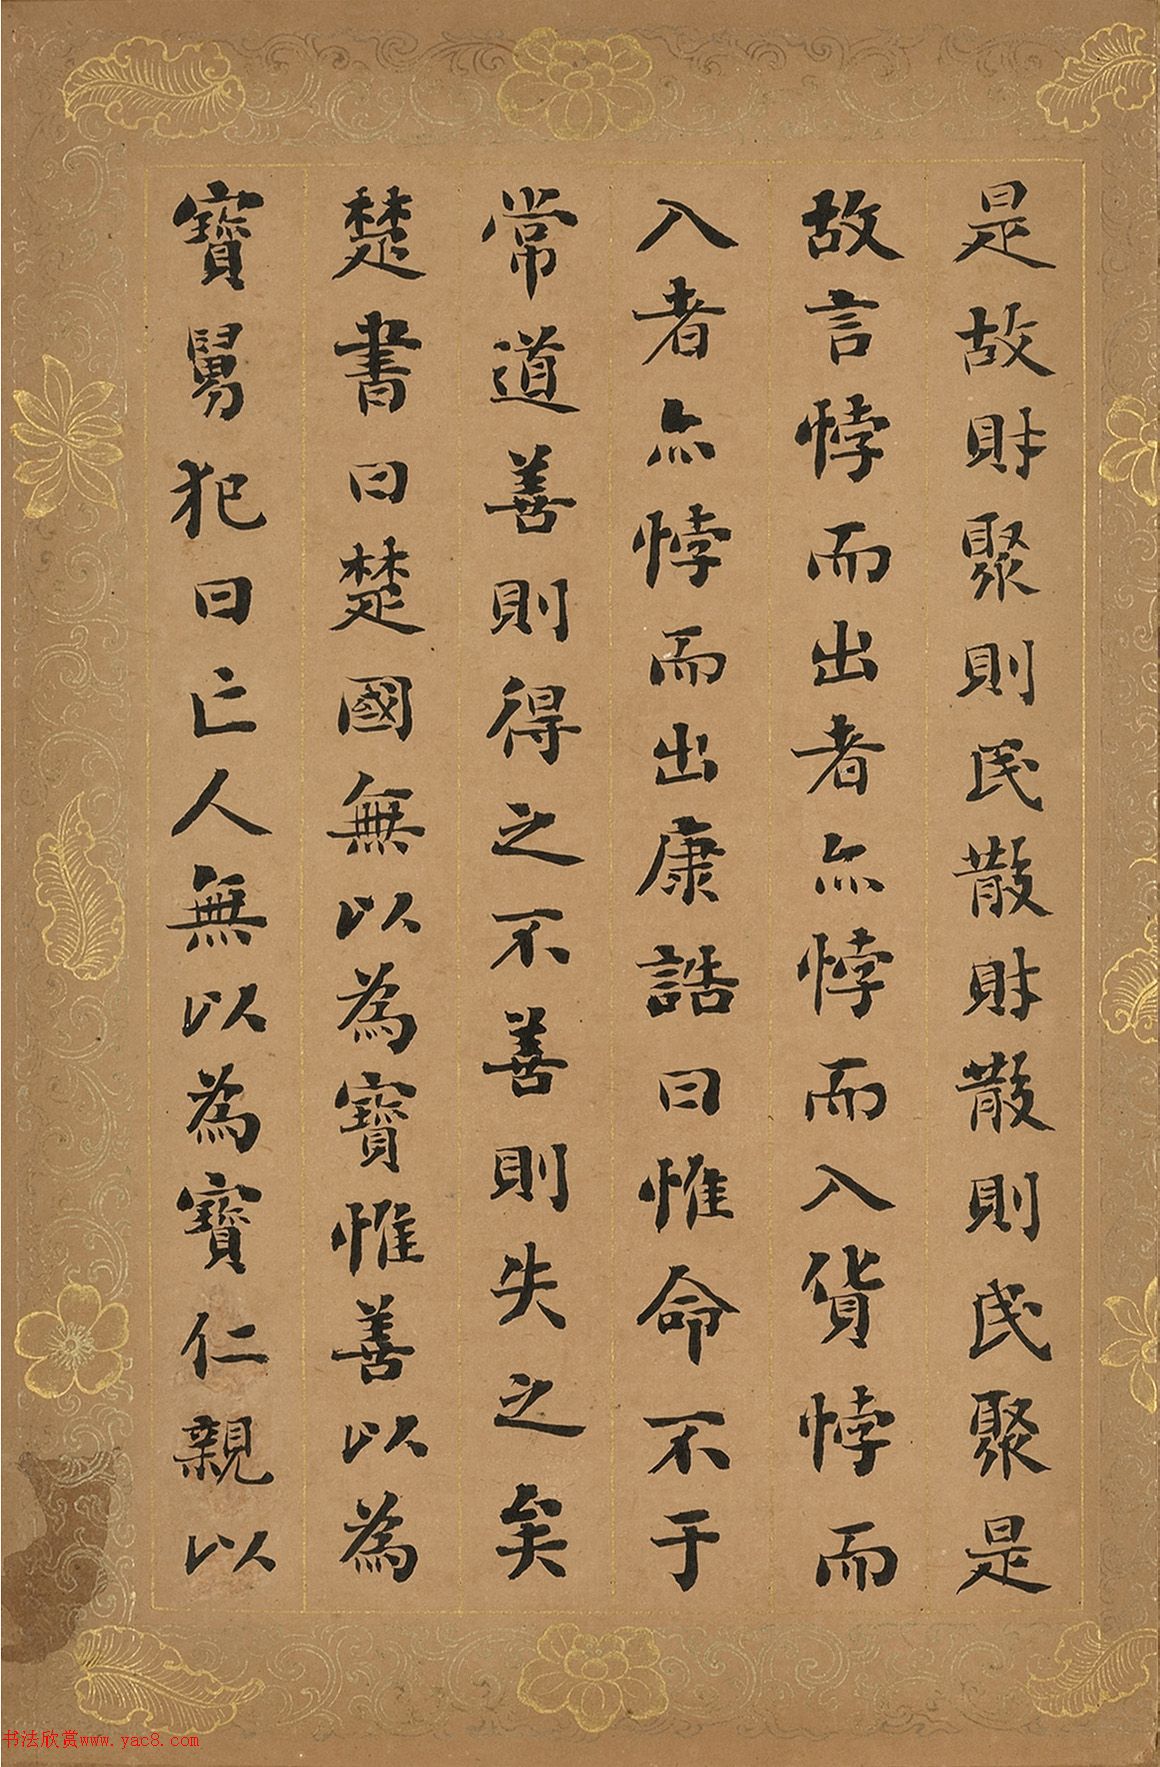 是故財聚則民散財散則民聚是
故言悖而出者亦悖而入貨悖而
入者亦悖而出康誥曰惟命不于
常道善則得之不善則失之矣
楚書曰楚國無以為寶惟善以為
寶舅犯曰亡人無以為寶仁親以
书法欣赏www.yac8.com